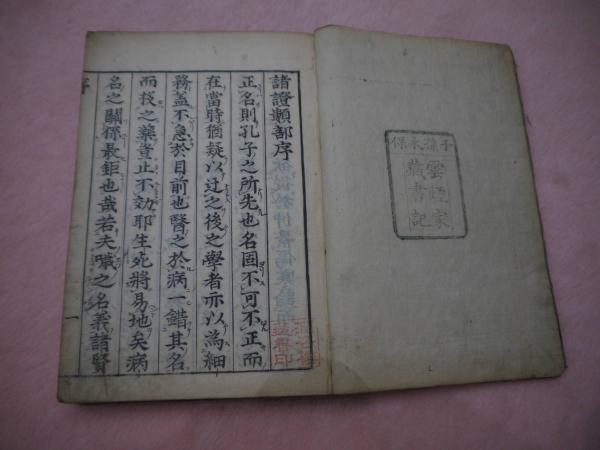 子孫永保
雲煙家
藏書記
諸證類部序
正名則孔子之所先也名固不可不正而
在當時猶疑以迂之後之學者亦以為細
務蓋不急於目前也醫之於病一錯其名
而投之藥豈止不効耶生死將易地矣病
名之關係最鉅也哉若夫瓛之名義諸賢
序
一